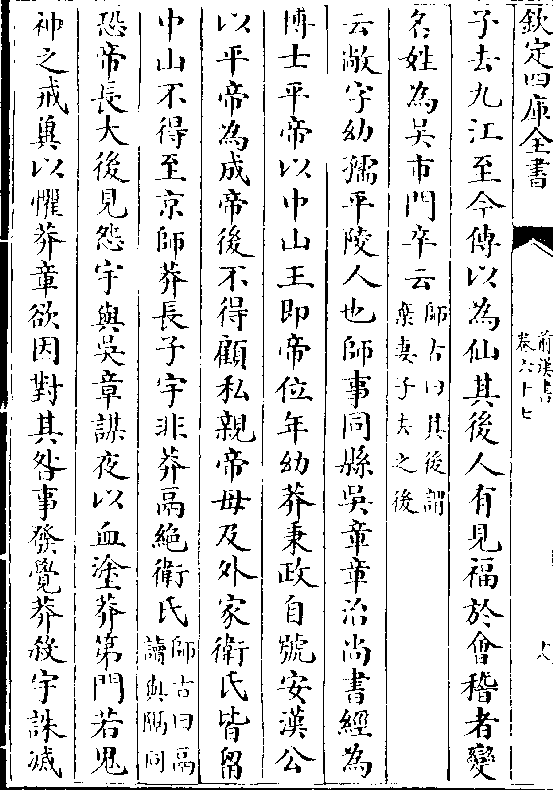 欽定四庫全書
前漢書
卷六十七
大
子去九江至今傳以為仙其後人有見福於會稽者變
名姓為吳市門卒云師古曰其後謂
棄妻子去之後
云敞字幼孺平陵人也師事同縣吳章章治尚書經為
博士平帝以中山王即帝位年幼莽秉政自號安漢公
以平帝為成帝後不得顧私親帝母及外家衛氏皆留
中山不得至京師莽長子宇非莽鬲絶衛氏師古曰鬲
讀與隔同
恐帝長大後見怨宇與吳章謀夜以血塗莽第門若鬼
神之戒兾以懼莽章欲因對其咎事發覺莽殺宇誅滅